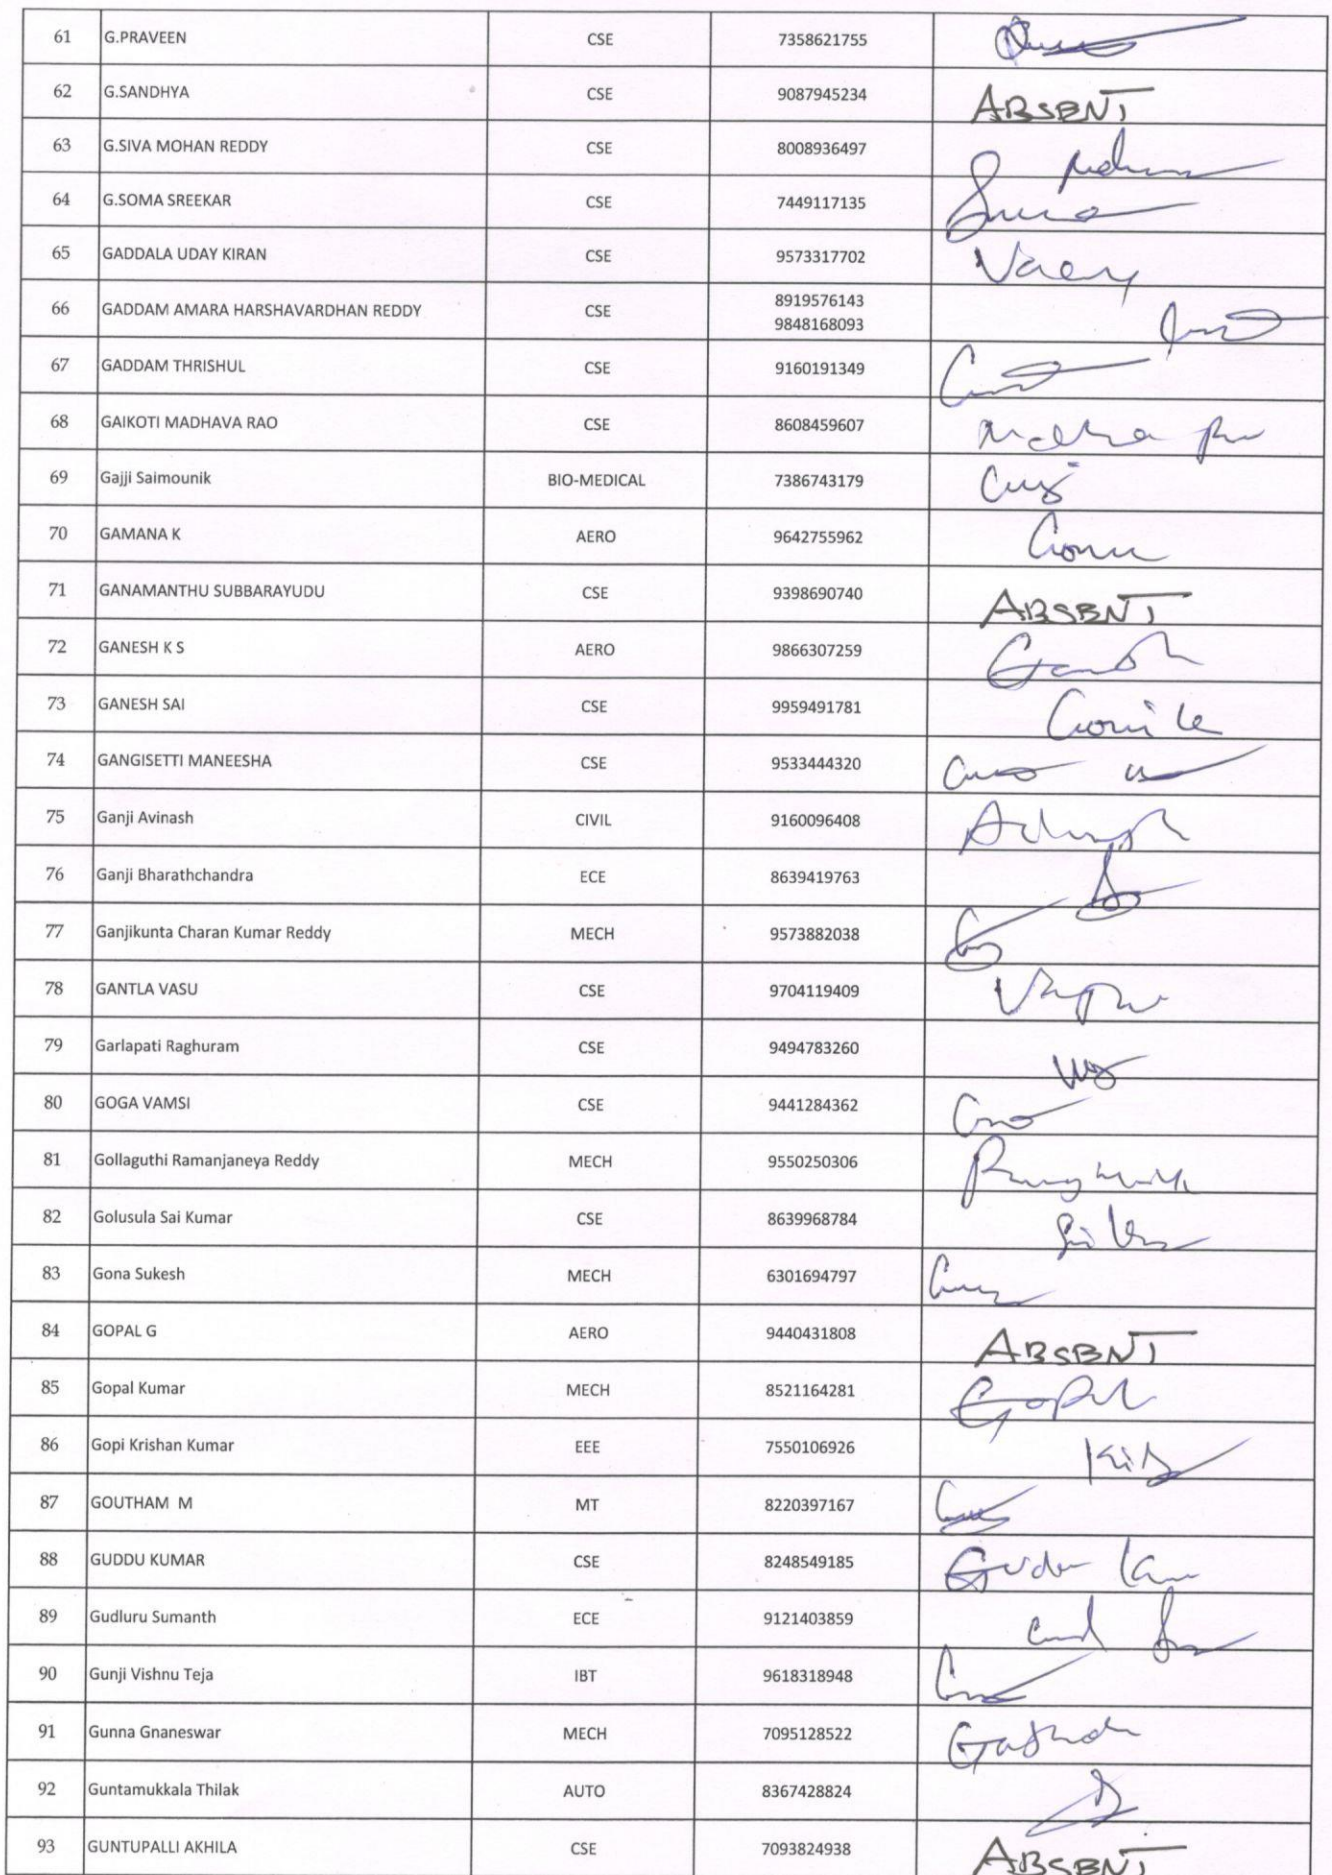 61 G.PRAVEEN CSE 7358621755
62 G.SANDHYA CSE 9087945234 ABSENT
63 G.SIVA MOHAN REDDY CSE 8008936497
64 G.SOMA SREEKAR CSE 7449117135
65 GADDALA UDAY KIRAN CSE 9573317702
66 GADDAM AMARA HARSHAVARDHAN REDDY CSE 8919576143
9848168093
67 GADDAM THRISHUL CSE 9160191349
68 GAIKOTI MADHAVA RAO CSE 8608459607
69 Gajji Saimounik BIO-MEDICAL 7386743179
70 GAMANA K AERO 9642755962
71 GANAMANTHU SUBBARAYUDU CSE 9398690740 ABSENT
72 GANESH K S AERO 9866307259
73 GANESH SAI CSE 9959491781
74 GANGISETTI MANEESHA CSE 9533444320
75 Ganji Avinash CIVIL 9160096408
76 Ganji Bharathchandra ECE 8639419763
77 Ganjikunta Charan Kumar Reddy MECH 9573882038
78 GANTLA VASU CSE 9704119409
79 Garlapati Raghuram CSE 9494783260
80 GOGA VAMSI CSE 9441284362
81 Gollaguthi Ramanjaneya Reddy MECH 9550250306
82 Golusula Sai Kumar CSE 8639968784
83 Gona Sukesh MECH 6301694797
84 GOPAL G AERO 9440431808 ABSENT
85 Gopal Kumar MECH 8521164281
86 Gopi Krishan Kumar EEE 7550106926
87 GOUTHAM M MT 8220397167
88 GUDDU KUMAR CSE 8248549185
89 Gudluru Sumanth ECE 9121403859
90 Gunji Vishnu Teja IBT 9618318948
91 Gunna Gnaneswar MECH 7095128522
92 Guntamukkala Thilak AUTO 8367428824
93 GUNTUPALLI AKHILA CSE 7093824938 ABSENT